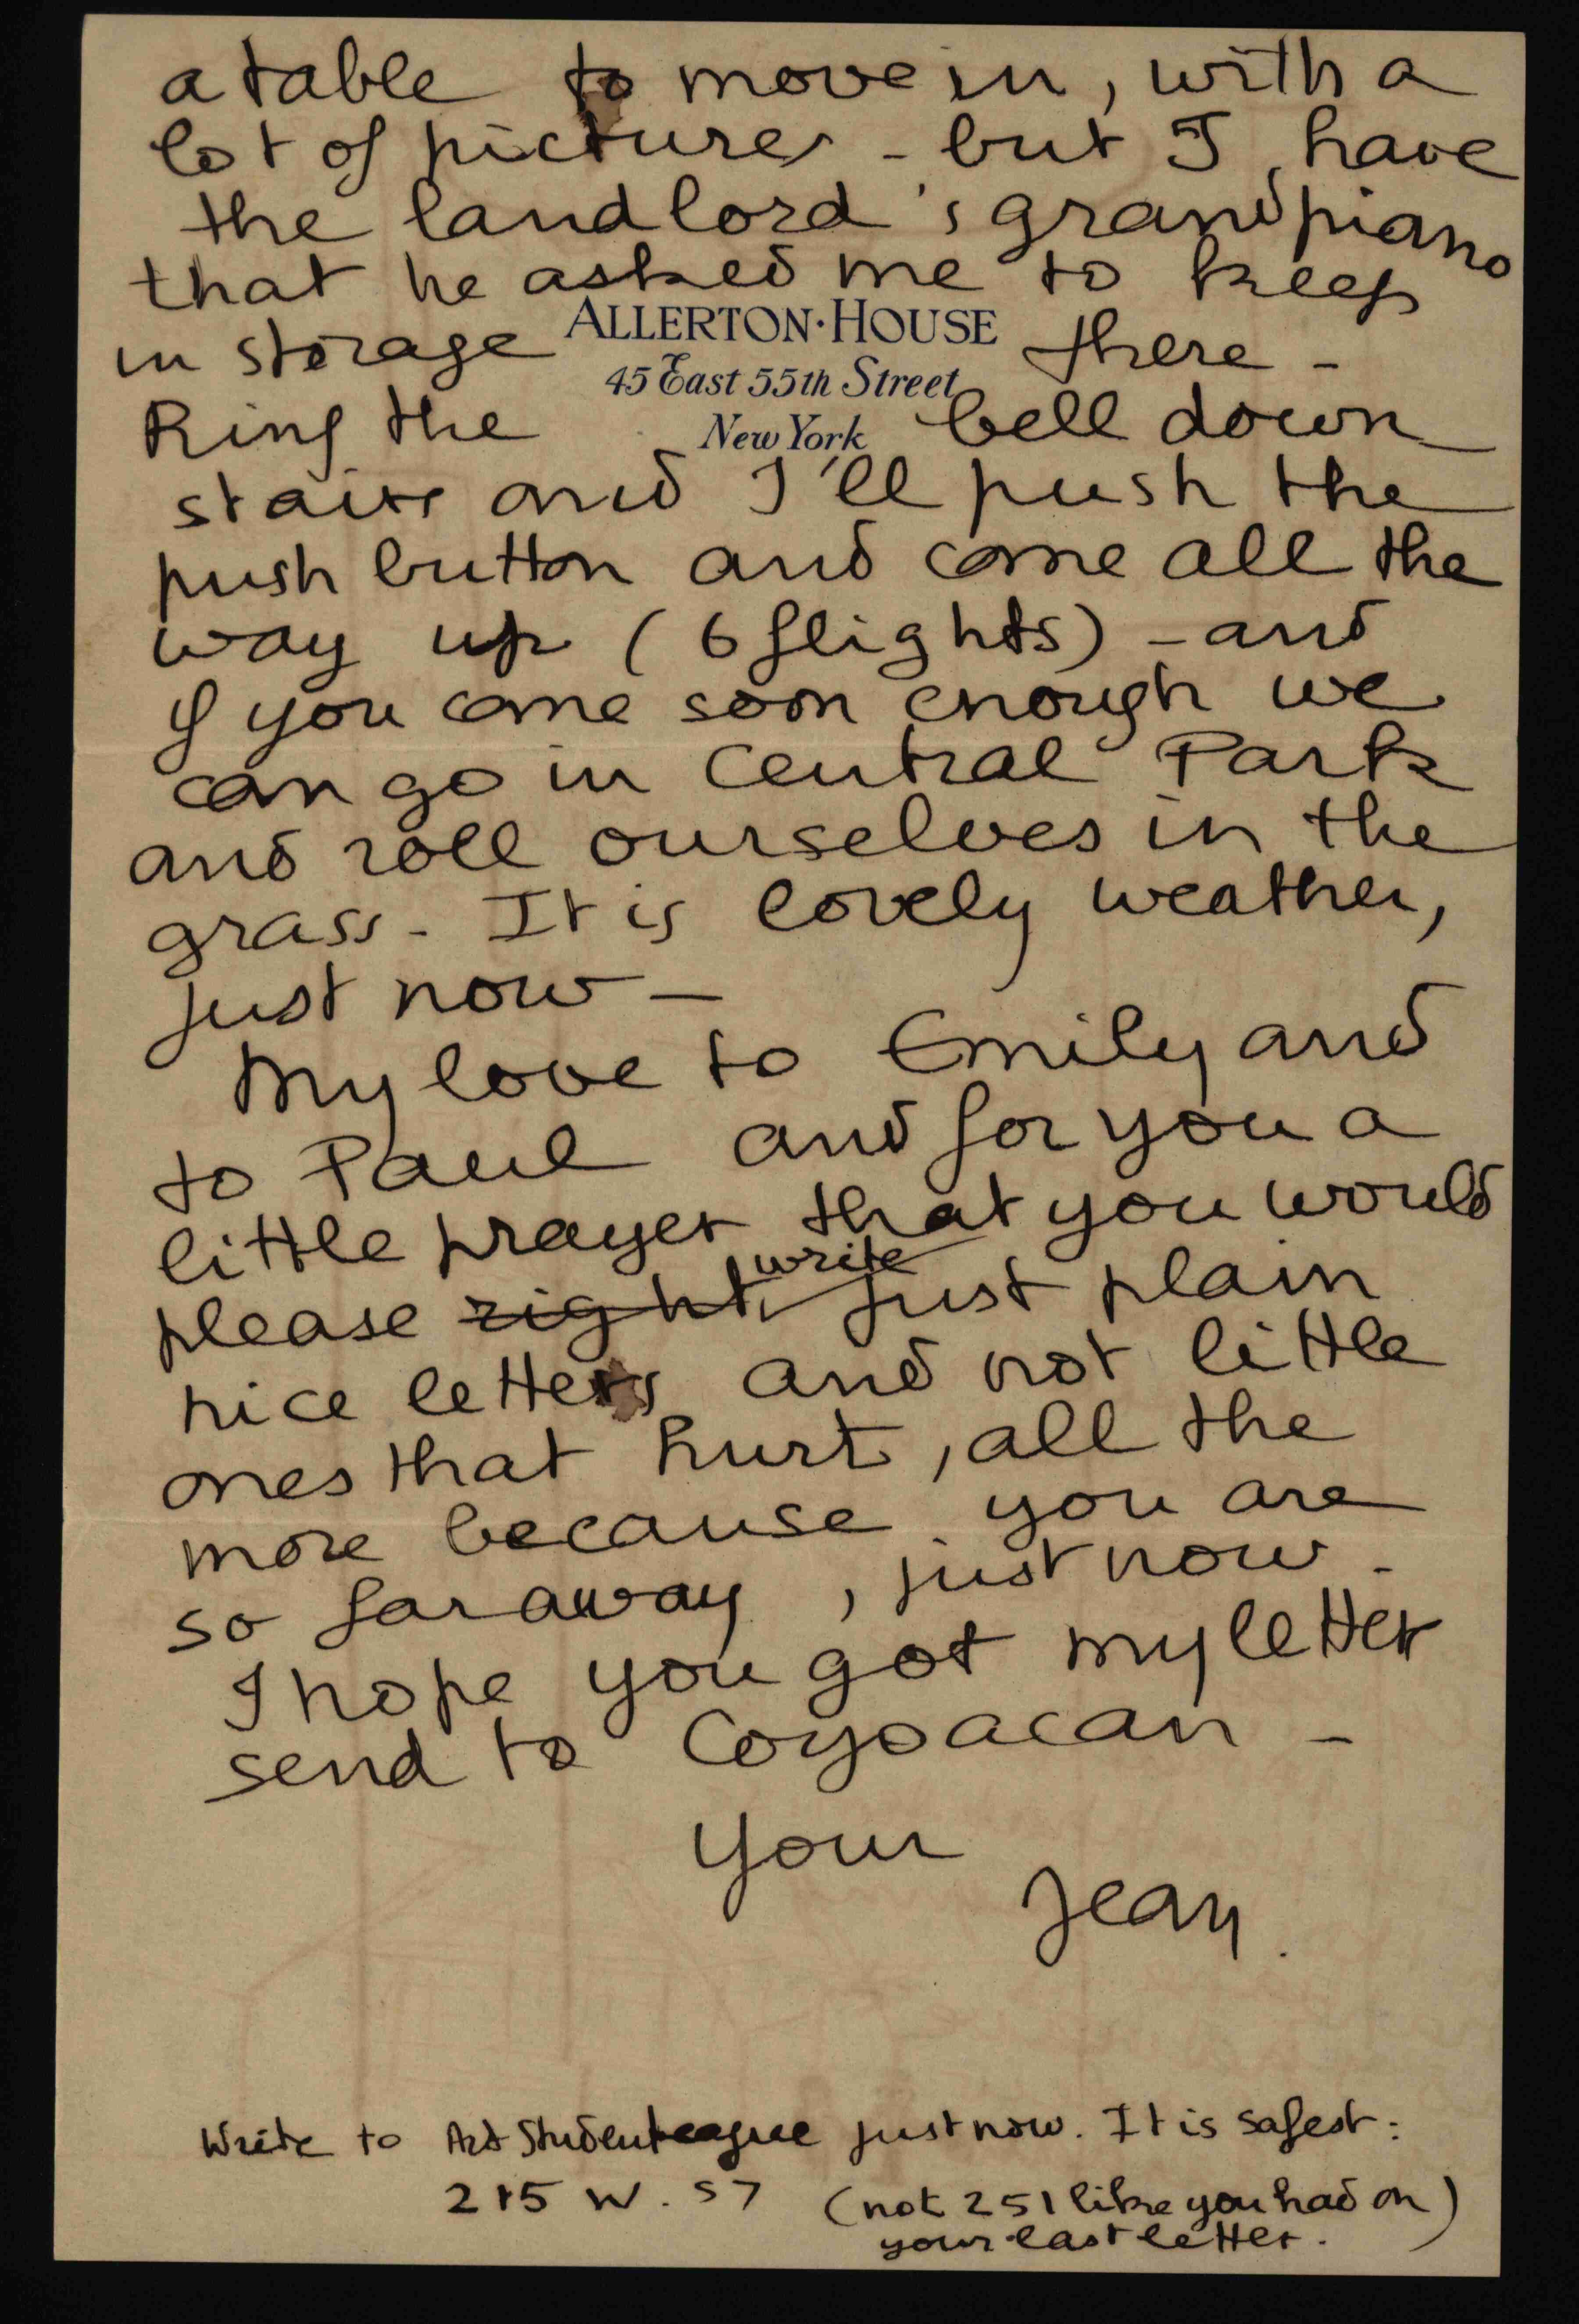 a table to move in, with a
lot of pictures - but I have
the landlord's grand piano
that he asked me to keep
ALLERTON·HOUSE
in storage there -
45 East 55th Street
New York
Ring the bell down
stairs and I'll push the
push button and come all the
way up (6 flights) - and
if you come soon enough we
can go in Central Park
and roll ourselves in the
grass - It is lovely weather,
just now -
My love to Emily and
to Paul and for you a
little prayer that you would
write
please right just plain
nice letters and not little
ones that hurt, all the
more because you are
so far away, just now -
I hope you got my letter
send to Coyoacan -
Your
Jean.
Write to Art Student League just now. It is safest:
215 W. 57 (not 251 like you had on)
your last letter.